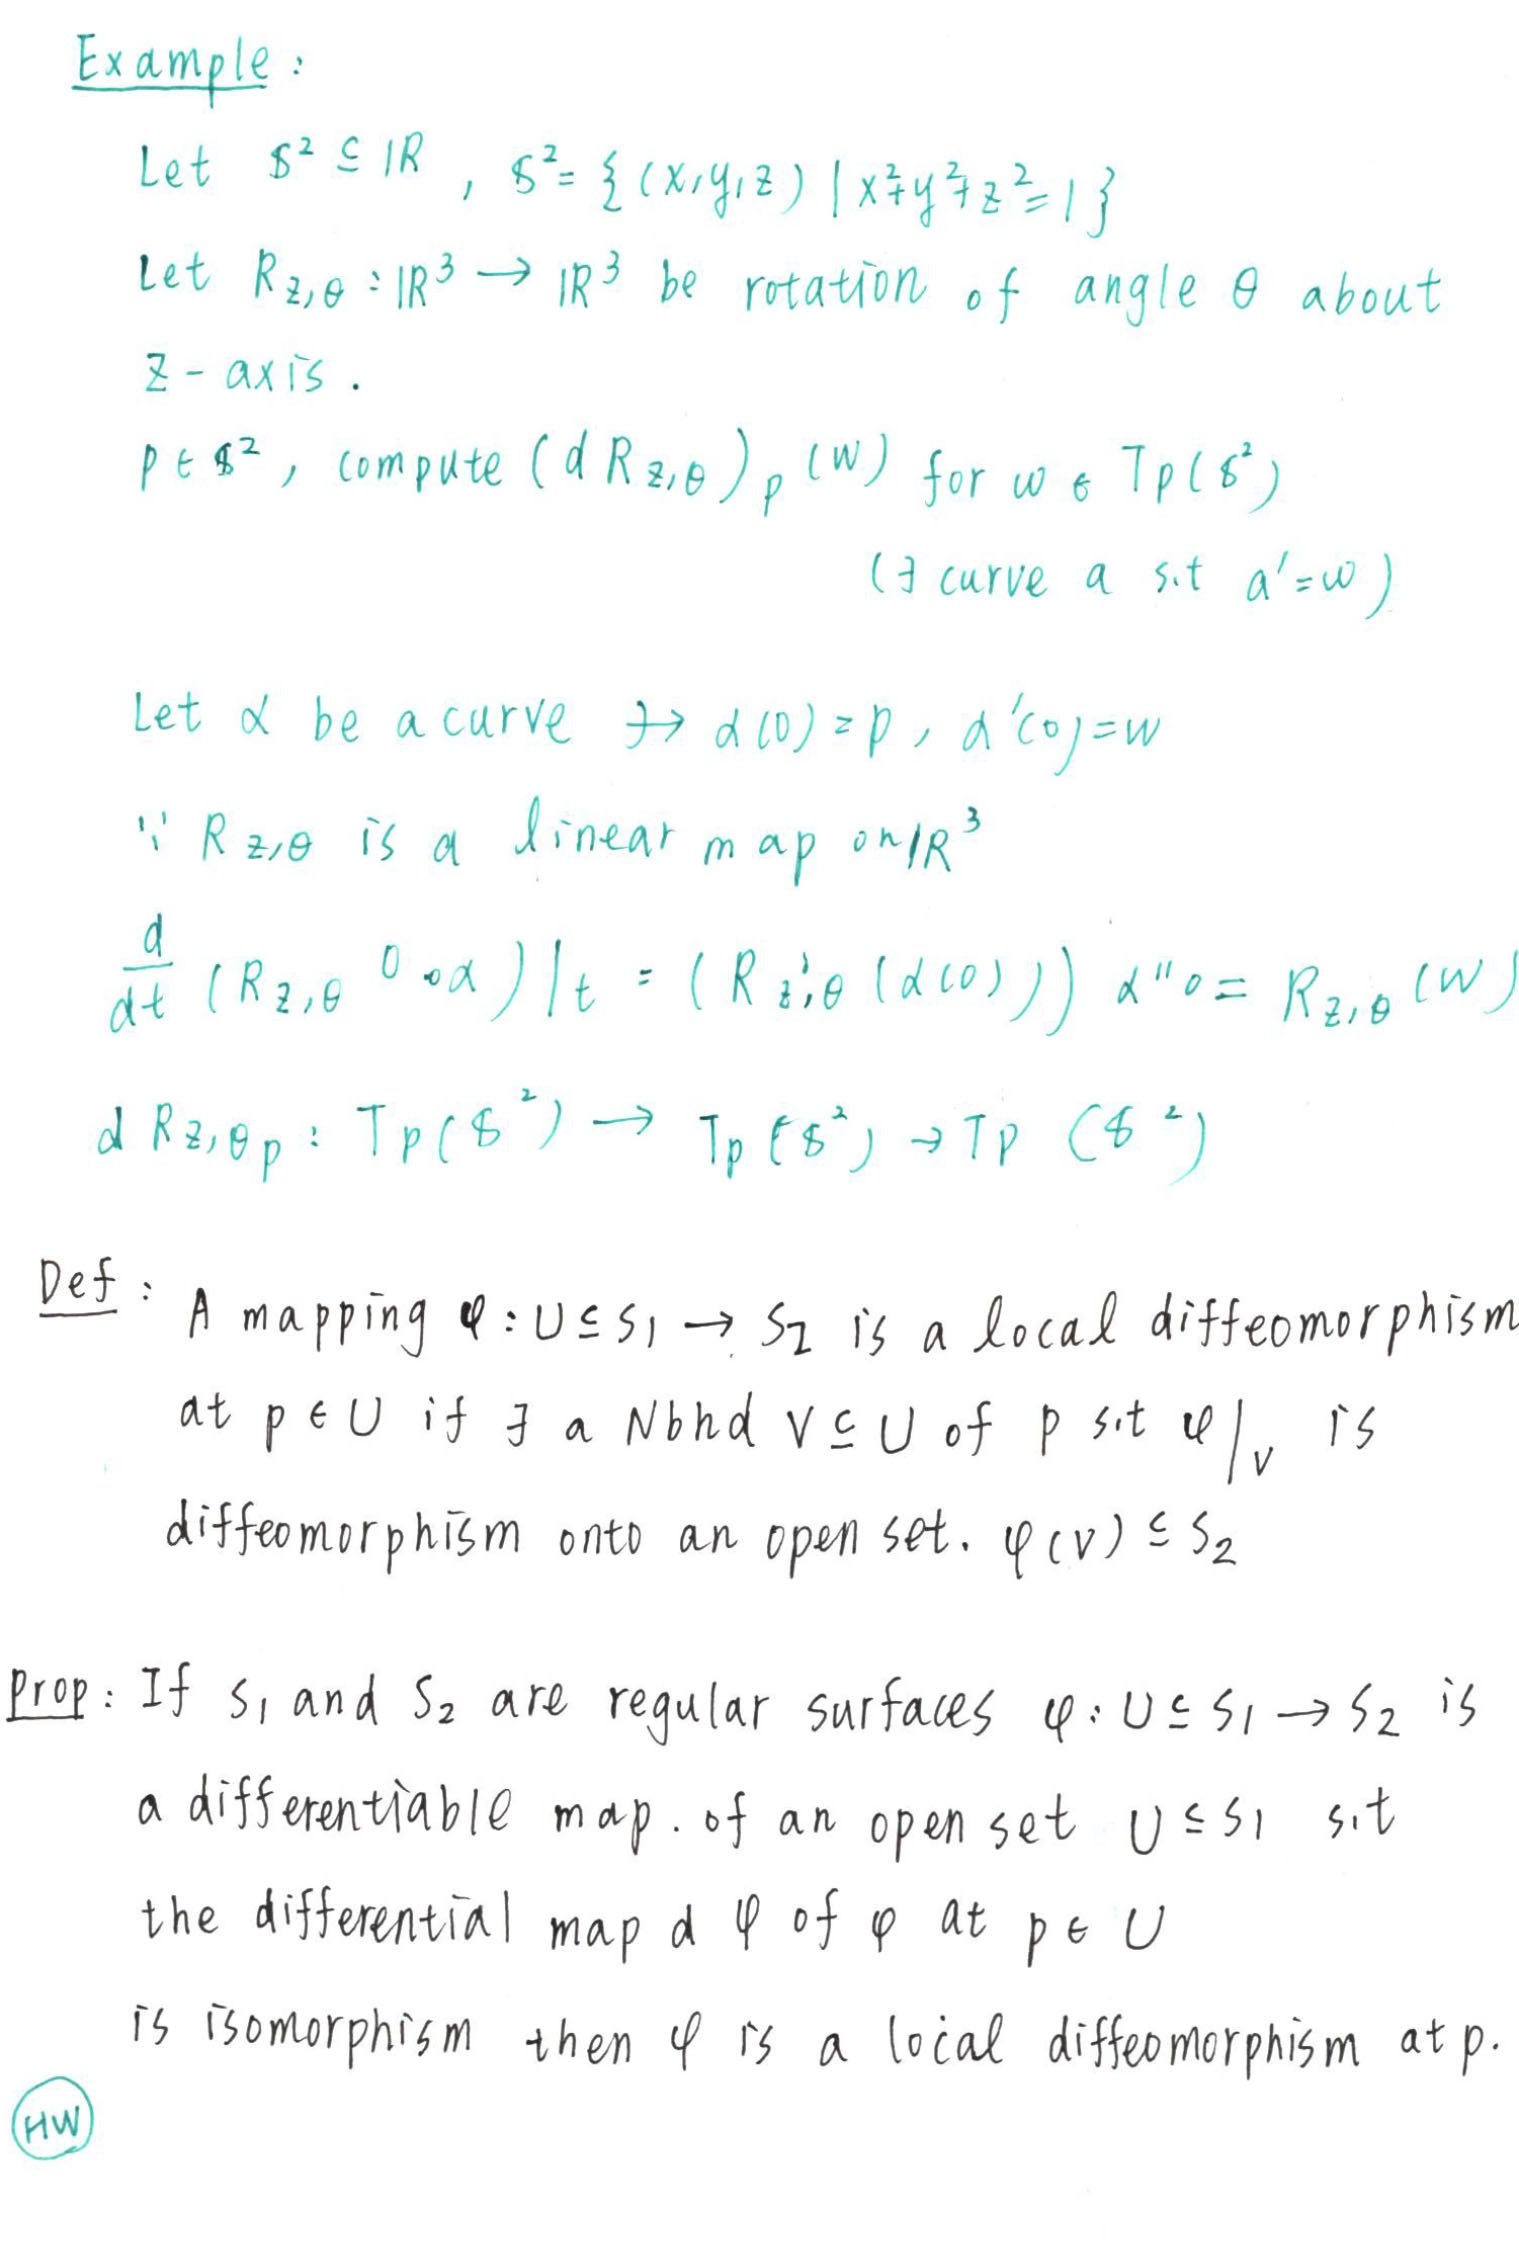 Example :
Let $² ⊆ IR , $² = { (x,y,z) | x²+y²+z²=1 }
Let R z,θ : IR³ → IR³ be rotation of angle θ about
z - axis .
p ∈ $² , compute (d R z,θ )p (w) for w ∈ Tp($²)
(∃ curve a s.t a'=w)
Let α be a curve ∋→ α(0) = p , α'(0)=w
∵ R z,θ is a linear map on IR³
d/dt (R z,θ 0 ∘α)|t = (R z',θ (α(0))) α''0 = R z,θ (w)
d R z,θ p : Tp($²) → Tp($²) → Tp ($²)
Def : A mapping φ : U ⊆ S1 → S2 is a local diffeomorphism
at p ∈ U if ∃ a Nbhd V ⊆ U of p s.t φ|v is
diffeomorphism onto an open set. φ(V) ⊆ S2
Prop : If S1 and S2 are regular surfaces φ : U ⊆ S1 → S2 is
a differentiable map. of an open set U ⊆ S1 s.t
the differential map d φ of φ at p ∈ U
is isomorphism then φ is a local diffeomorphism at p.
HW